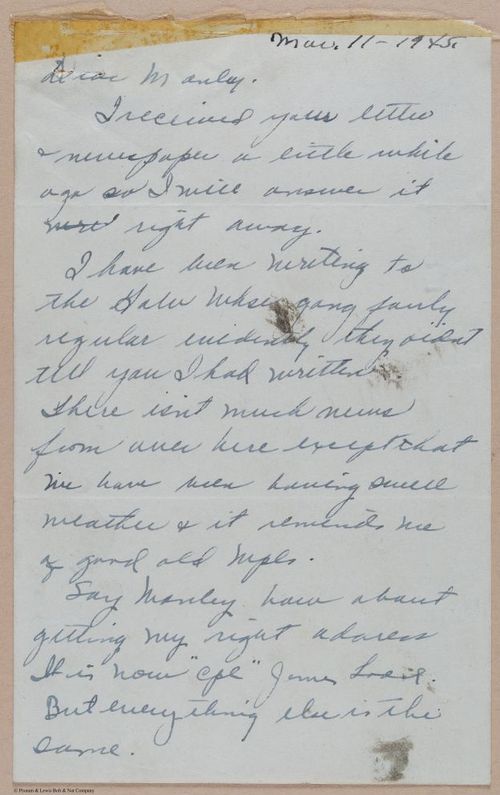 Mar. 11 - 1945.
Dear Manley.
I received your letter
& newspaper a little while
ago so I will answer it
right away.
I have been writing to
the gang fairly
regular evidently they didn't
tell you I had written.
There isn't much news
from over here except that
we have been having swell
weather & it reminds me
of good old Mpls.
Say Manley how about
getting my right address
It is now "Cpl" James
But everything else is the
same.